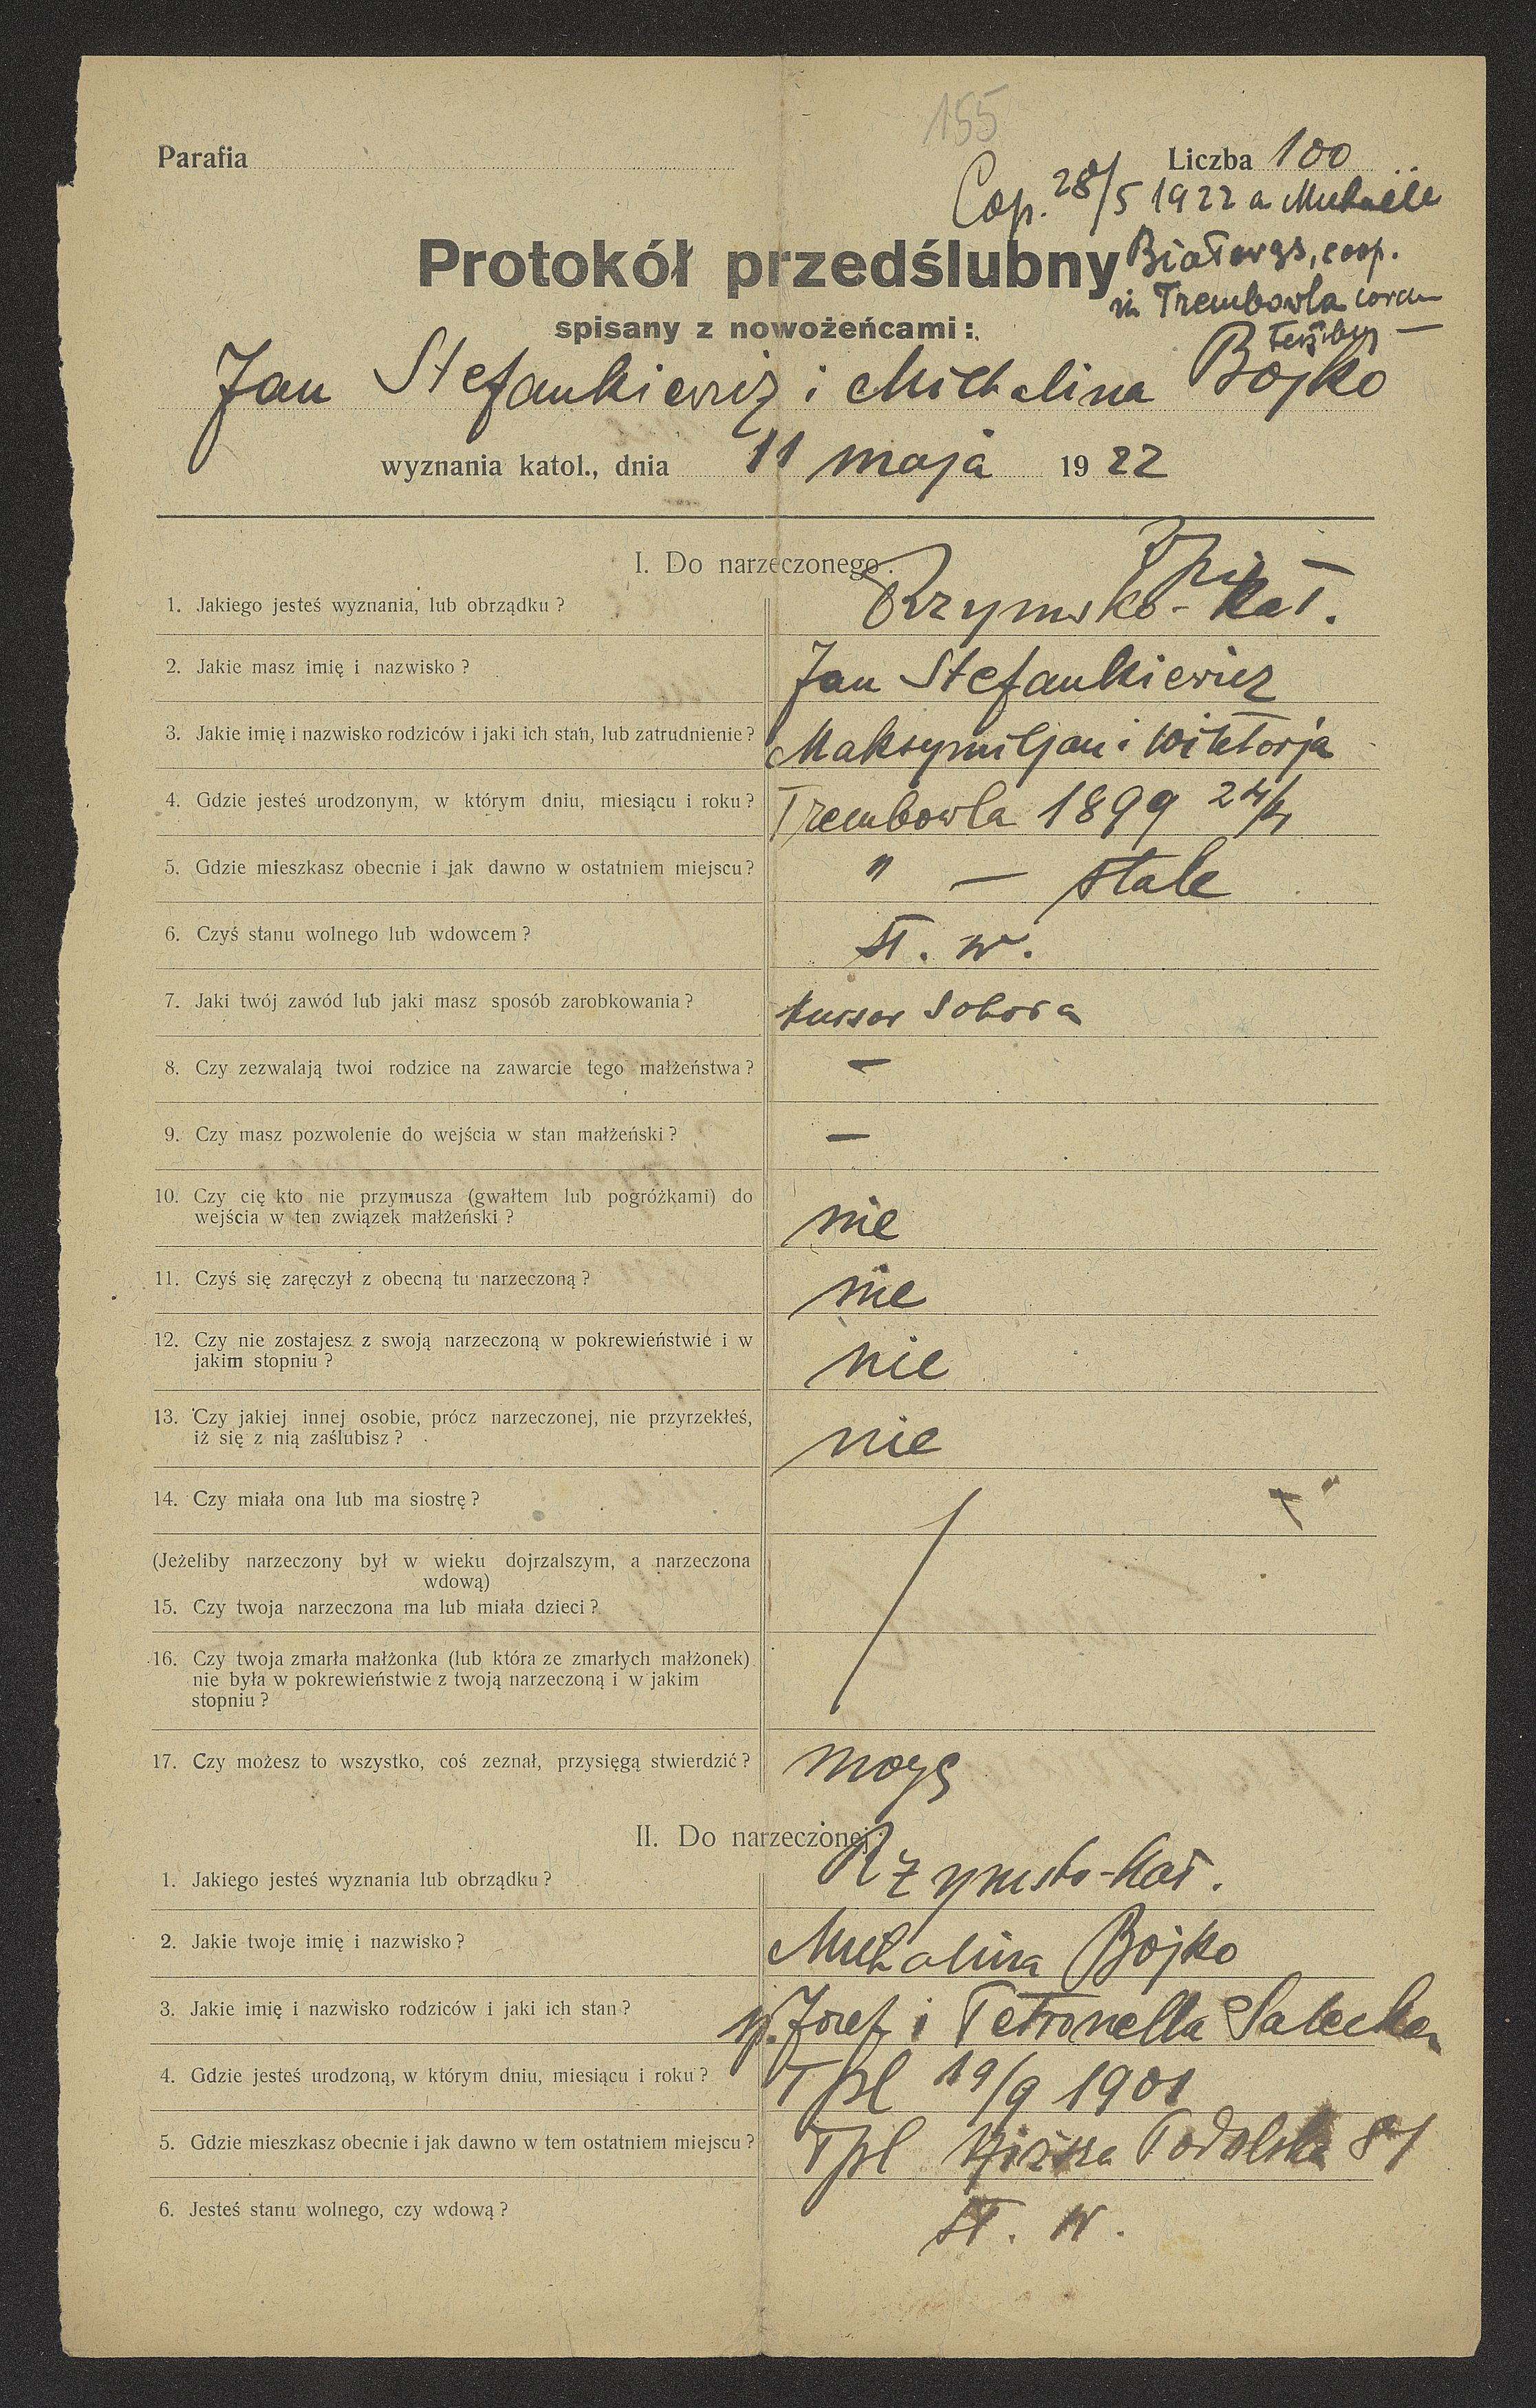 155
Parafia
Liczba 100
Cop. 28/5 1922 a
coop.
in Trembowla coram
Protokół przedślubny
spisany z nowożeńcami:
Jan Stefankiewicz i Michalina Bojko
wyznania katol., dnia 11 maja 1922
I. Do narzeczonego.
1. Jakiego jesteś wyznania, lub obrządku? Rzymsko-kat.
2. Jakie masz imię i nazwisko? Jan Stefankiewicz
3. Jakie imię i nazwisko rodziców i jaki ich stan, lub zatrudnienie? Maksymiljan i Wiktorja
4. Gdzie jesteś urodzonym, w którym dniu, miesiącu i roku? Trembowla 1899
5. Gdzie mieszkasz obecnie i jak dawno w ostatniem miejscu? " — stale
6. Czyś stanu wolnego lub wdowcem? st. w.
7. Jaki twój zawód lub jaki masz sposób zarobkowania?
8. Czy zezwalają twoi rodzice na zawarcie tego małżeństwa? —
9. Czy masz pozwolenie do wejścia w stan małżeński? —
10. Czy cię kto nie przymusza (gwałtem lub pogróżkami) do
wejścia w ten związek małżeński? nie
11. Czyś się zaręczył z obecną tu narzeczoną? nie
12. Czy nie zostajesz z swoją narzeczoną w pokrewieństwie i w
jakim stopniu? nie
13. Czy jakiej innej osobie, prócz narzeczonej, nie przyrzekłeś,
iż się z nią zaślubisz? nie
14. Czy miała ona lub ma siostrę?
(Jeżeliby narzeczony był w wieku dojrzalszym, a narzeczona
wdową)
15. Czy twoja narzeczona ma lub miała dzieci?
16. Czy twoja zmarła małżonka (lub która ze zmarłych małżonek)
nie była w pokrewieństwie z twoją narzeczoną i w jakim
stopniu?
17. Czy możesz to wszystko, coś zeznał, przysięgą stwierdzić? mogę
II. Do narzeczonej.
1. Jakiego jesteś wyznania lub obrządku? Rzymsko-kat.
2. Jakie twoje imię i nazwisko? Michalina Bojko
3. Jakie imię i nazwisko rodziców i jaki ich stan? Józef i Petronella Salecka
4. Gdzie jesteś urodzoną, w którym dniu, miesiącu i roku? Tpl 19/9 1901
5. Gdzie mieszkasz obecnie i jak dawno w tem ostatniem miejscu? Tpl Niższa Podolska 81
6. Jesteś stanu wolnego, czy wdową? st. w.